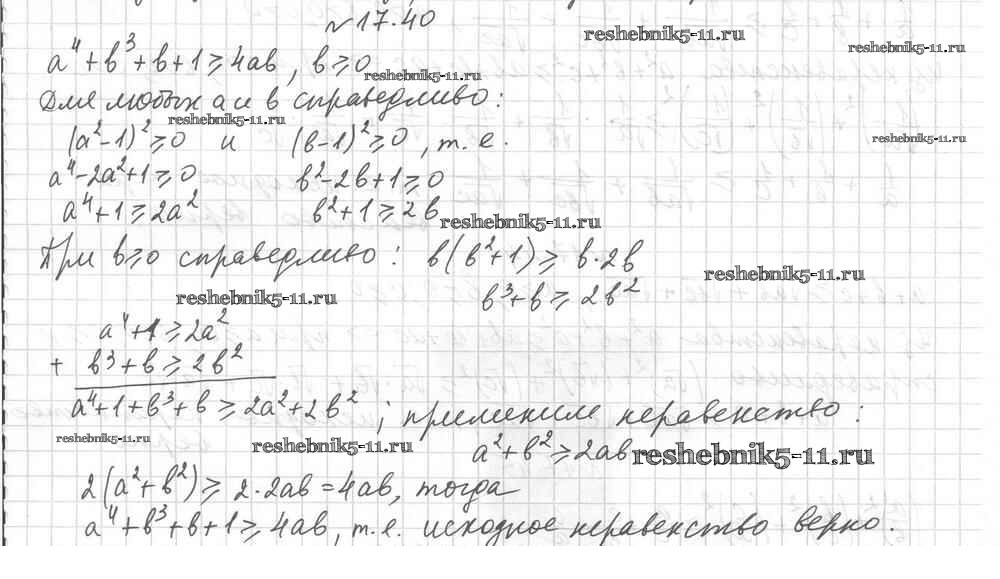 № 17.40
reshebnik5-11.ru
reshebnik5-11.ru
a⁴+b³+b+1≥4ab, b≥0
reshebnik5-11.ru
Для любых a и b справедливо:
reshebnik5-11.ru
(a²-1)²≥0 и (b-1)²≥0, т.е.
reshebnik5-11.ru
a⁴-2a²+1≥0 b²-2b+1≥0
a⁴+1≥2a² b²+1≥2b
reshebnik5-11.ru
При b≥0 справедливо: b(b²+1)≥b·2b
reshebnik5-11.ru
b³+b≥2b²
reshebnik5-11.ru
a⁴+1≥2a²
+ b³+b≥2b²
a⁴+1+b³+b≥2a²+2b²; применим неравенство:
reshebnik5-11.ru
reshebnik5-11.ru
a²+b²≥2ab
reshebnik5-11.ru
2(a²+b²)≥2·2ab=4ab, тогда
a⁴+b³+b+1≥4ab, т.е. исходное неравенство верно.